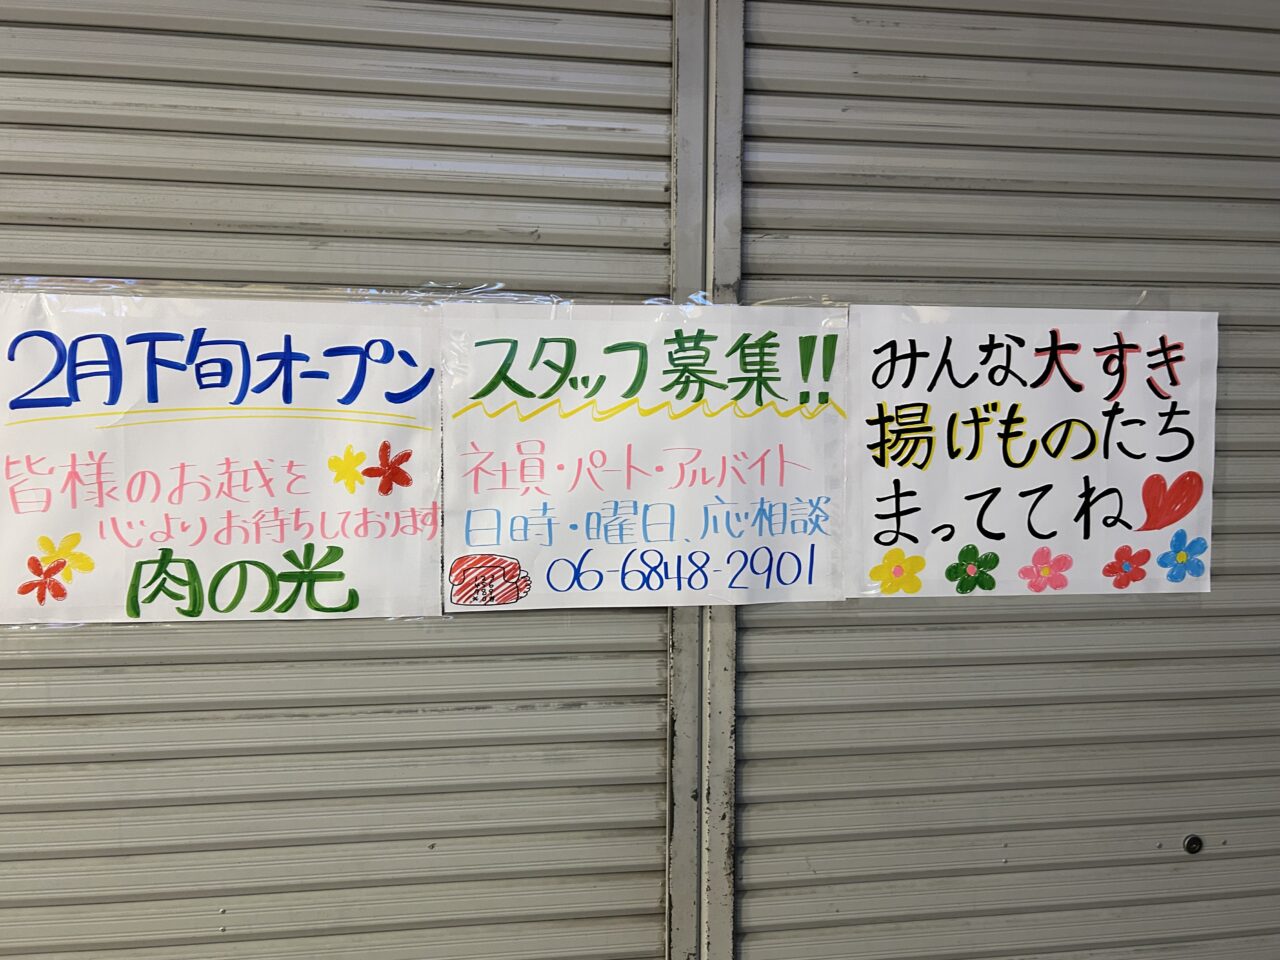 2月下旬オープン
皆様のお越を
心よりお待ちしております
肉の光
スタッフ募集!!
社員・パート・アルバイト
日時・曜日、応相談
06-6848-2901
みんな大すき
揚げものたち
まっててね